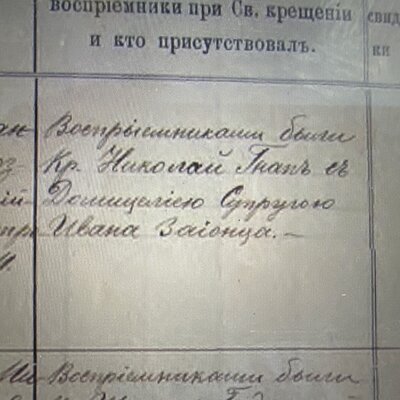 воспріемники при Св. крещеніи
и кто присутствовалъ.
свид
ки
Воспрыемниками были
Кр. Николай Гнапъ съ
Домицелією Супругою
Ивана Заіонца.—
Воспріемниками были